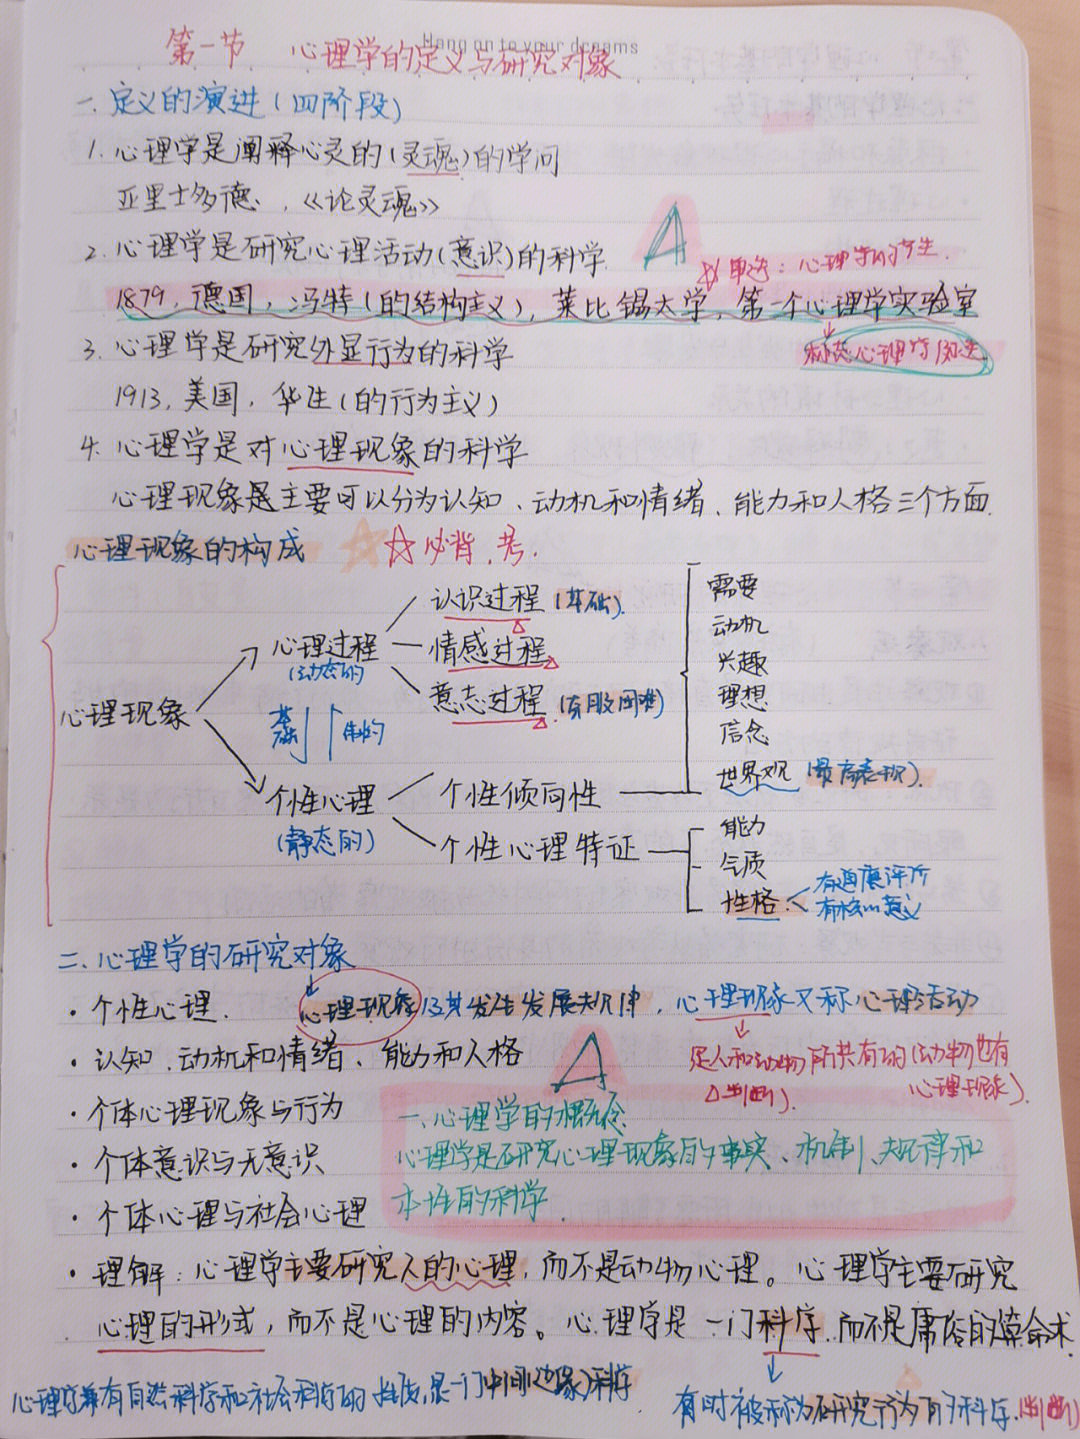 Hang on to your dreams
第一节 心理学的定义与研究对象
一、定义的演进(四阶段)
1. 心理学是阐释心灵的(灵魂)的学问
亚里士多德.《论灵魂》
2. 心理学是研究心理活动(意识)的科学.
A
单选:心理学的产生.
1879,德国,冯特(的结构主义),莱比锡大学,第一个心理学实验室
3. 心理学是研究外显行为的科学
标志心理学
1913,美国,华生(的行为主义)
4. 心理学是对心理现象的科学
心理现象是主要可以分为认知、动机和情绪、能力和人格三个方面.
心理现象的构成
☆必背,考.
心理现象
心理过程
(动态的)
认识过程(基础).
情感过程
意志过程(克服困难)
基础
制约
个性心理
(静态的)
个性倾向性
需要
动机
兴趣
理想
信念
世界观(最高表现).
个性心理特征
能力
气质
性格
有道德评价
有核心意义
二、心理学的研究对象
心理现象及其发生发展规律,心理现象又称心理活动
是人和动物所共有的(动物也有
心理现象).
判断).
· 个性心理.
· 认知、动机和情绪、能力和人格
· 个体心理现象与行为
· 个体意识与无意识
· 个体心理与社会心理
A
一.心理学的概念
心理学是研究心理现象的事实、机制、规律和
本性的科学.
· 理解:心理学主要研究人的心理,而不是动物心理。心理学主要研究
心理的形式,而不是心理的内容。心理学是一门科学.而不是庸俗的算命术.
心理学兼有自然科学和社会科学的性质,是一门中间(边缘)科学
有时被称为研究行为的科学.(判断)